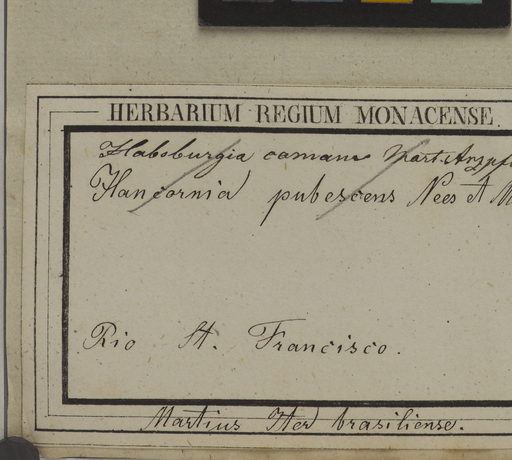 HERBARIUM REGIUM MONACENSE.
Habsburgia comans Mart.
Hancornia pubescens Nees et M
Rio St. Francisco.
Martius Iter brasiliense.